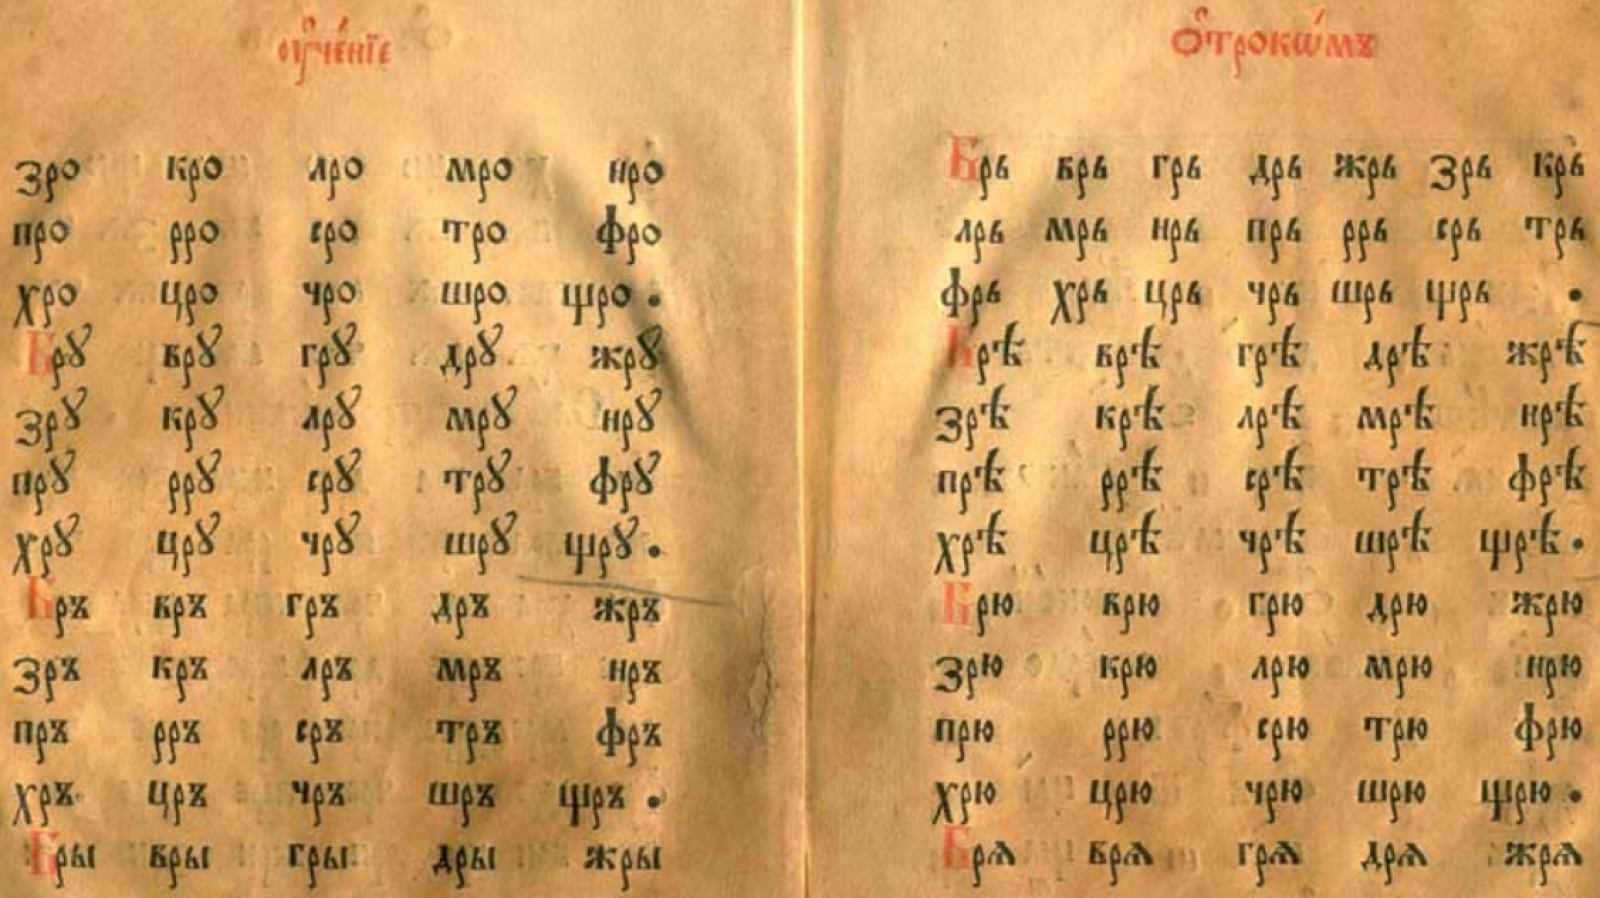 ᲂу҆че́нїе
зро кро лро мро нро
про рро сро тро фро
хро цро чро шро щро .
Брꙋ врꙋ грꙋ дрꙋ жрꙋ
зрꙋ крꙋ лрꙋ мрꙋ нрꙋ
прꙋ ррꙋ срꙋ трꙋ фрꙋ
хрꙋ црꙋ чрꙋ шрꙋ щрꙋ .
Бръ връ гръ дръ жръ
зръ кръ лръ мръ нръ
пръ рръ сръ тръ фръ
хръ цръ чръ шръ щръ .
Бры вры гры дры жры
ѻ҆трокѡ́мъ
Брь врь грь дрь жрь зрь крь
лрь мрь нрь прь ррь срь трь
фрь хрь црь чрь шрь щрь .
Брѣ врѣ грѣ дрѣ жрѣ
зрѣ крѣ лрѣ мрѣ нрѣ
прѣ ррѣ срѣ трѣ фрѣ
хрѣ црѣ чрѣ шрѣ щрѣ .
Брю врю грю дрю жрю
зрю крю лрю мрю нрю
прю ррю срю трю фрю
хрю црю чрю шрю щрю .
Брѧ врѧ грѧ дрѧ жрѧ